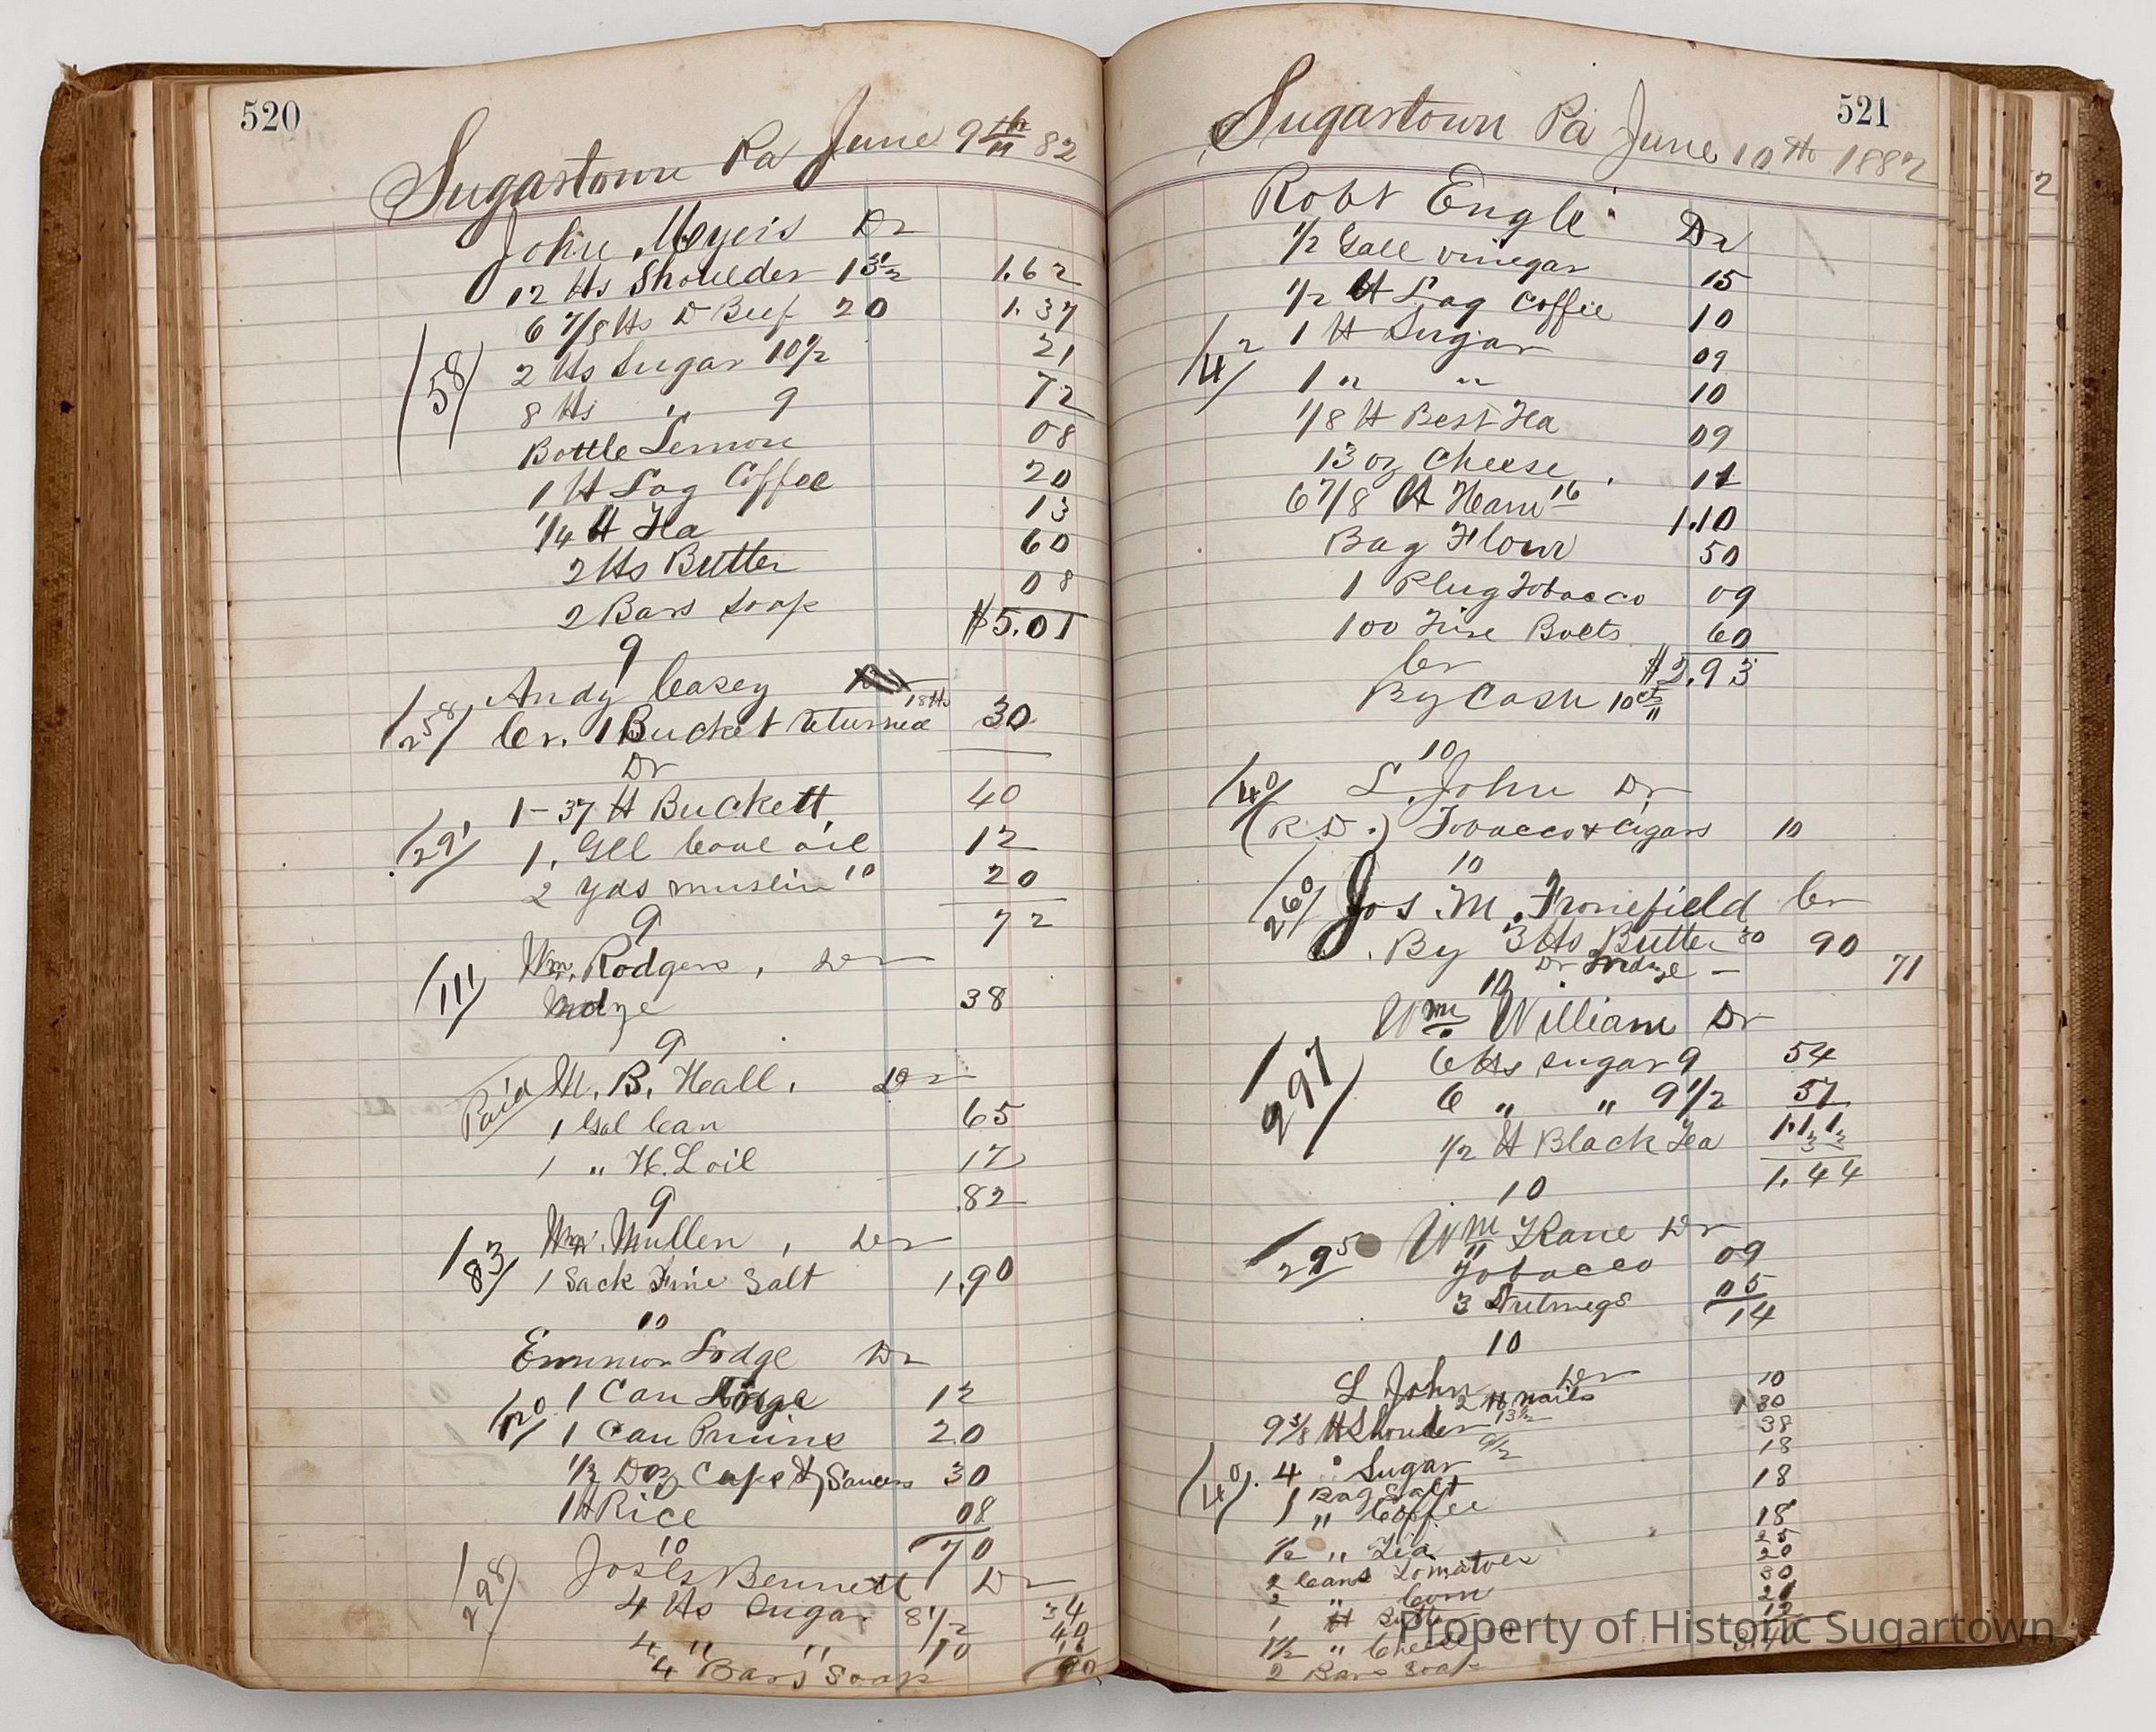 520
Sugartown Pa June 9th 82
John Meyers Dr
12 lts Shoulder 13 1/2 1.62
6 7/8 lts D Beef 20 1.37
/58/ 2 lts Sugar 10 1/2 21
8 lts " 9 72
Bottle Lemon 08
1 lt Lag Coffee 20
1/4 lt Tea 13
2 lts Butter 60
2 Bars Soap 08
$5.01
9
Andy Casey
/258/ Cr. 1 Bucket returned 30
Dr
1-37 lt Buckett 40
/291/ 1. Gll Coal oil 12
2 yds muslin 10 20
72
9
Wm. Rodgers, Dr
/111/ Mdze 38
9
Paid M. B. Heall, Dr
1 Gal Can 65
1 " H. L oil 17
.82
9
Wm. Mullen, Dr
/83/ 1 Sack Fine Salt 1.90
10
Lodge Dr
/120/ 1 Can 12
1 Can Pruine 20
1/2 Doz Cups & Saucers 30
1 lt Rice 08
70
10
/298/ Bennett Dr
4 lts Sugar 8 1/2 34
4 " " 10 40
4 Bars Soap
521
Sugartown Pa June 10th 1882
Robt Engle Dr
1/2 Gall vinegar 15
1/2 lt Lag Coffee 10
/42/ 1 lt Sugar 09
1 " " 10
1/8 lt Best Tea 09
13 oz Cheese 11
6 7/8 lt Ham 16 1.10
Bag Flour 50
1 Plug Tobacco 09
100 Tire Bolts 60
Cr $2.93
By Cash 10cts
10
/40/ L. John Dr
(R.D.) Tobacco & Cigars 10
10
/260/ Jos. M. Fronefield Cr
By 3 lts Butter 30 90
Dr Mdze - 71
10
Wm William Dr
/297/ 6 lts sugar 9 54
6 " " 9 1/2 57
1.11
1/2 lt Black Tea 33
1.44
10
/295 Wm Kane Dr
Tobacco 09
3 Nutmegs 05
14
10
L John Dr
2 lt nails 10
9 5/8 lt Shoulder 13 1/2 1 30
/40/ 4 " Sugar 9 1/2 38
1 Bag Salt 18
1 " Coffee 18
1/2 " Tea 18
2 Cans Tomatoes 25
2 " Corn 20
1 lt Butter 30
1 1/2 " Cheese
2 Bars Soap
2
Property of Historic Sugartown